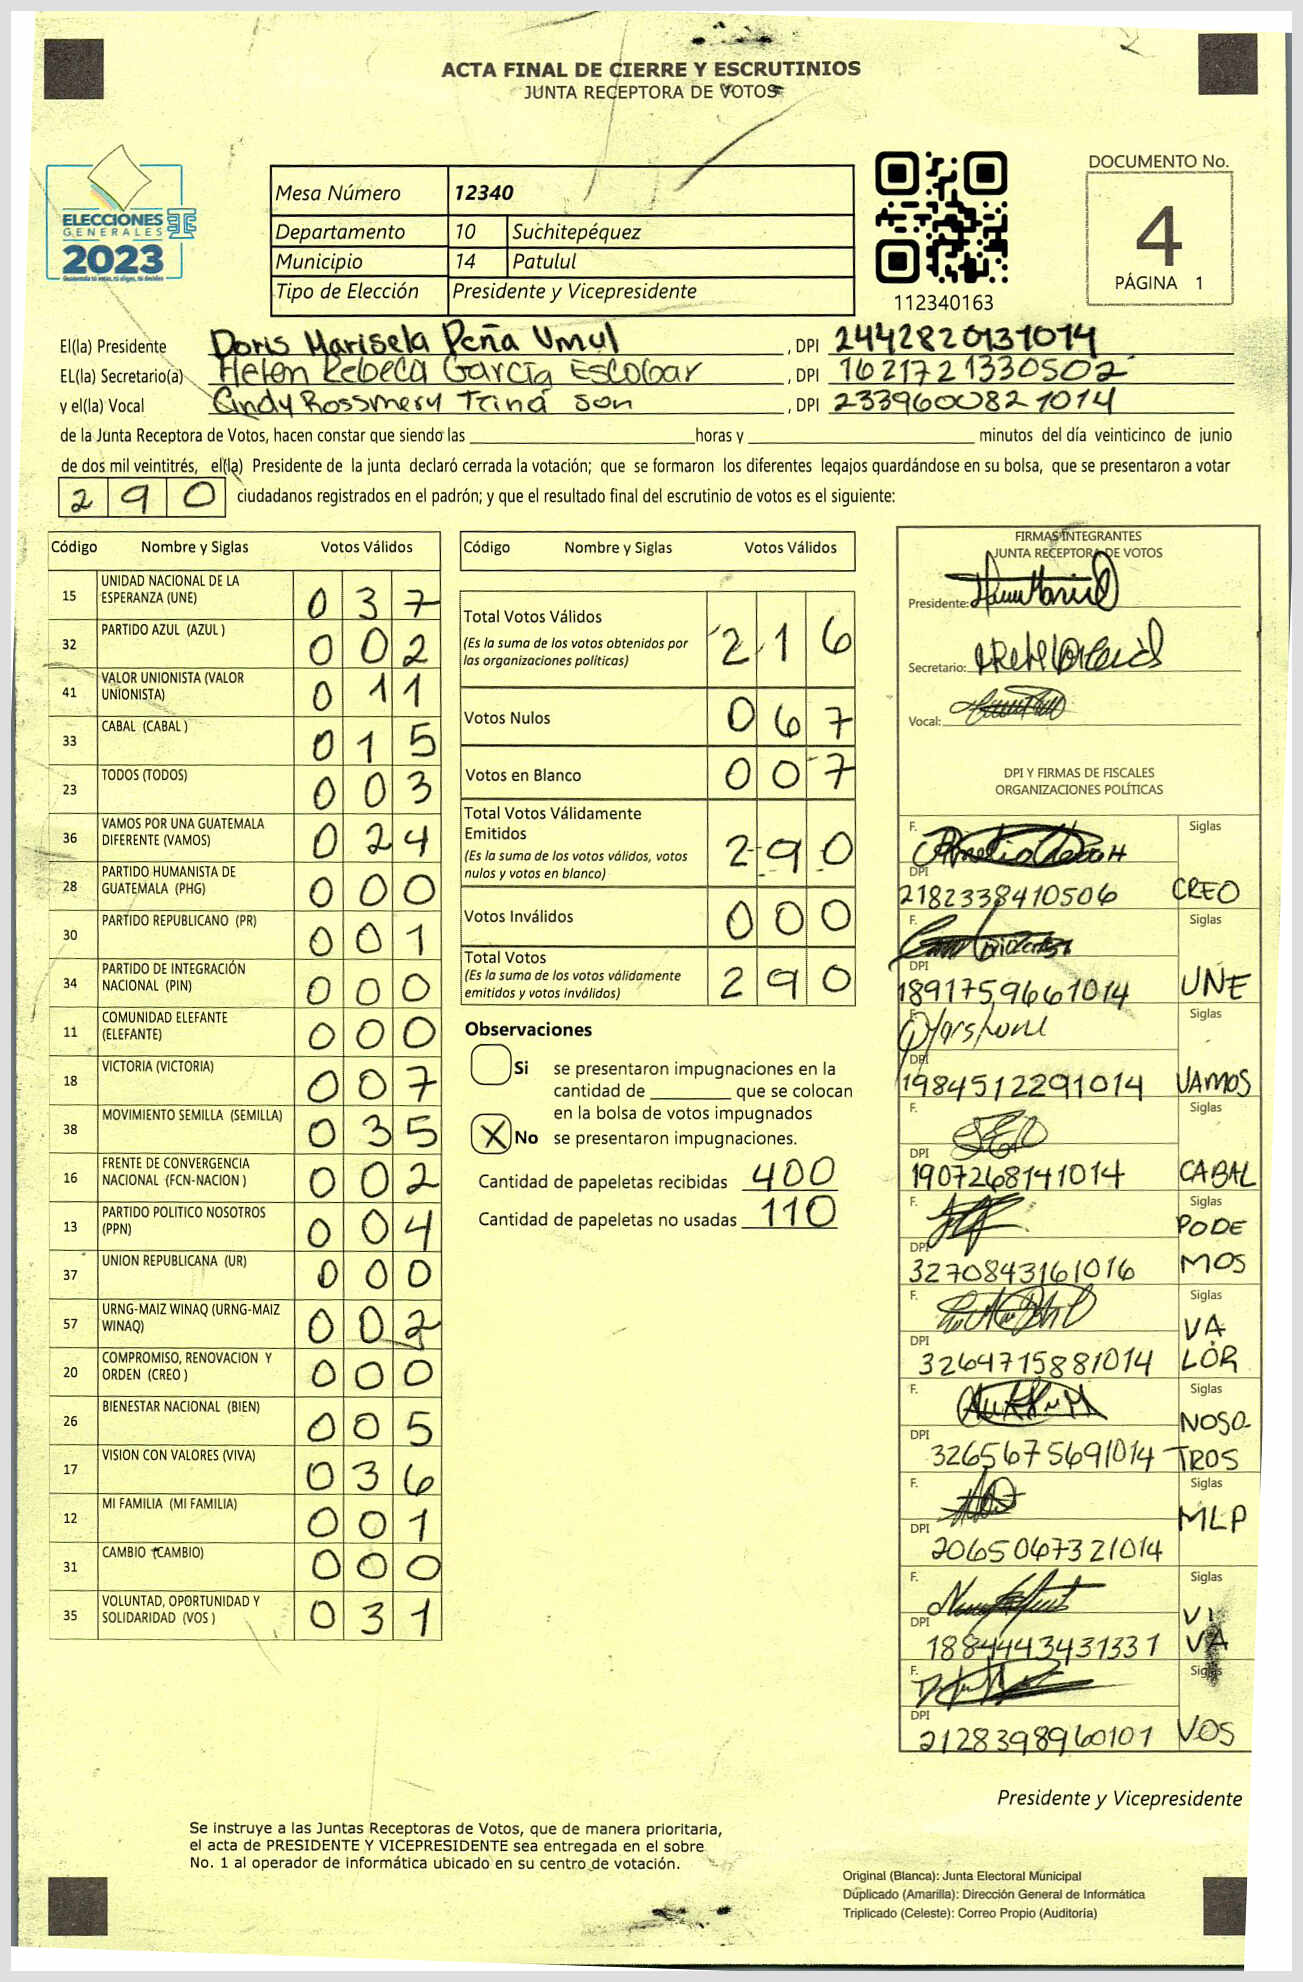 ACTA FINAL DE CIERRE Y ESCRUTINIOS
JUNTA RECEPTORA DE VOTOS
ELECCIONES
GENERALES
2023
Mesa Número 12340
Departamento 10 Suchitepéquez
Municipio 14 Patulul
Tipo de Elección Presidente y Vicepresidente
112340163
DOCUMENTO No.
4
PÁGINA 1
El(la) Presidente Doris Marisela Peña Umul, DPI 2442820131014
EL(la) Secretario(a) Helen Rebeca García Escobar, DPI 1621721330502
y el(la) Vocal Cindy Rossmery Tziná Son, DPI 2339600821014
de la Junta Receptora de Votos, hacen constar que siendo las horas y minutos del día veinticinco de junio
de dos mil veintitrés, el(la) Presidente de la junta declaró cerrada la votación; que se formaron los diferentes legajos guardándose en su bolsa, que se presentaron a votar
290 ciudadanos registrados en el padrón; y que el resultado final del escrutinio de votos es el siguiente:
Código Nombre y Siglas Votos Válidos
15 UNIDAD NACIONAL DE LA ESPERANZA (UNE) 037
32 PARTIDO AZUL (AZUL ) 002
41 VALOR UNIONISTA (VALOR UNIONISTA) 011
33 CABAL (CABAL ) 015
23 TODOS (TODOS) 003
36 VAMOS POR UNA GUATEMALA DIFERENTE (VAMOS) 024
28 PARTIDO HUMANISTA DE GUATEMALA (PHG) 000
30 PARTIDO REPUBLICANO (PR) 001
34 PARTIDO DE INTEGRACIÓN NACIONAL (PIN) 000
11 COMUNIDAD ELEFANTE (ELEFANTE) 000
18 VICTORIA (VICTORIA) 007
38 MOVIMIENTO SEMILLA (SEMILLA) 035
16 FRENTE DE CONVERGENCIA NACIONAL (FCN-NACION ) 002
13 PARTIDO POLITICO NOSOTROS (PPN) 004
37 UNION REPUBLICANA (UR) 000
57 URNG-MAIZ WINAQ (URNG-MAIZ WINAQ) 002
20 COMPROMISO, RENOVACION Y ORDEN (CREO ) 000
26 BIENESTAR NACIONAL (BIEN) 005
17 VISION CON VALORES (VIVA) 036
12 MI FAMILIA (MI FAMILIA) 001
31 CAMBIO (CAMBIO) 000
35 VOLUNTAD, OPORTUNIDAD Y SOLIDARIDAD (VOS ) 031
Código Nombre y Siglas Votos Válidos
Total Votos Válidos 216
(Es la suma de los votos obtenidos por
las organizaciones políticas)
Votos Nulos 067
Votos en Blanco 007
Total Votos Válidamente
Emitidos 290
(Es la suma de los votos válidos, votos
nulos y votos en blanco)
Votos Inválidos 000
Total Votos 290
(Es la suma de los votos válidamente
emitidos y votos inválidos)
Observaciones
Si se presentaron impugnaciones en la
cantidad de que se colocan
en la bolsa de votos impugnados
X No se presentaron impugnaciones.
Cantidad de papeletas recibidas 400
Cantidad de papeletas no usadas 110
FIRMAS INTEGRANTES
JUNTA RECEPTORA DE VOTOS
Presidente:
Secretario:
Vocal:
DPI Y FIRMAS DE FISCALES
ORGANIZACIONES POLÍTICAS
F. Siglas
DPI 2182338410506 CREO
F. Siglas
DPI 1891759661014 UNE
F. Siglas
DPI 1984512291014 VAMOS
F. Siglas
DPI 1907268141014 CABAL
F. Siglas
DPI 3270843161016 PODEMOS
F. Siglas
DPI 3264715881014 VALOR
F. Siglas
DPI 3265675691014 NOSOTROS
F. Siglas
DPI 2065067321014 MLP
F. Siglas
DPI 1884443431331 VIVA
F. Siglas
DPI 2128398960101 VOS
Presidente y Vicepresidente
Se instruye a las Juntas Receptoras de Votos, que de manera prioritaria,
el acta de PRESIDENTE Y VICEPRESIDENTE sea entregada en el sobre
No. 1 al operador de informática ubicado en su centro de votación.
Original (Blanca): Junta Electoral Municipal
Duplicado (Amarilla): Dirección General de Informática
Triplicado (Celeste): Correo Propio (Auditoría)